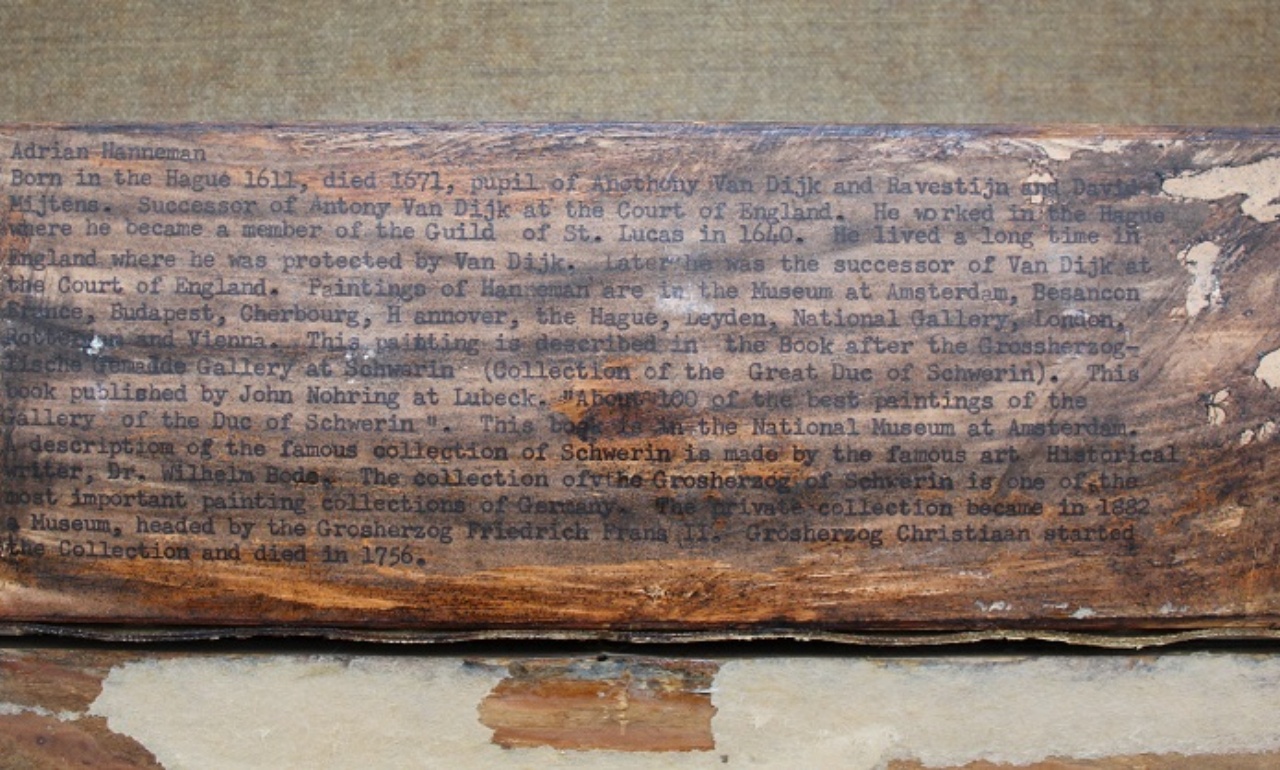 Adrian Hanneman
Born in the Hague 1611, died 1671, pupil of Anothony Van Dijk and Ravestijn and David
Mijtens. Successor of Antony Van Dijk at the Court of England. He worked in the Hague
where he became a member of the Guild of St. Lucas in 1640. He lived a long time in
England where he was protected by Van Dijk. Later he was the successor of Van Dijk at
the Court of England. Paintings of Hanneman are in the Museum at Amsterdam, Besancon
France, Budapest, Cherbourg, H annover, the Hague, Leyden, National Gallery, London,
Rotterdam and Vienna. This painting is described in the Book after the Grossherzog-
lische Gemalde Gallery at Schwarin (Collection of the Great Duc of Schwerin). This
book published by John Nohring at Lubeck. "About 100 of the best paintings of the
Gallery of the Duc of Schwerin ". This book is in the National Museum at Amsterdam.
description of the famous collection of Schwerin is made by the famous art Historical
writer, Dr. Wilhelm Bode. The collection ofvthe Grosherzog of Schwerin is one of the
most important painting collections of Germany. The private collection became in 1882
a Museum, headed by the Grosherzog Friedrich Frans II. Grosherzog Christiaan started
the Collection and died in 1756.